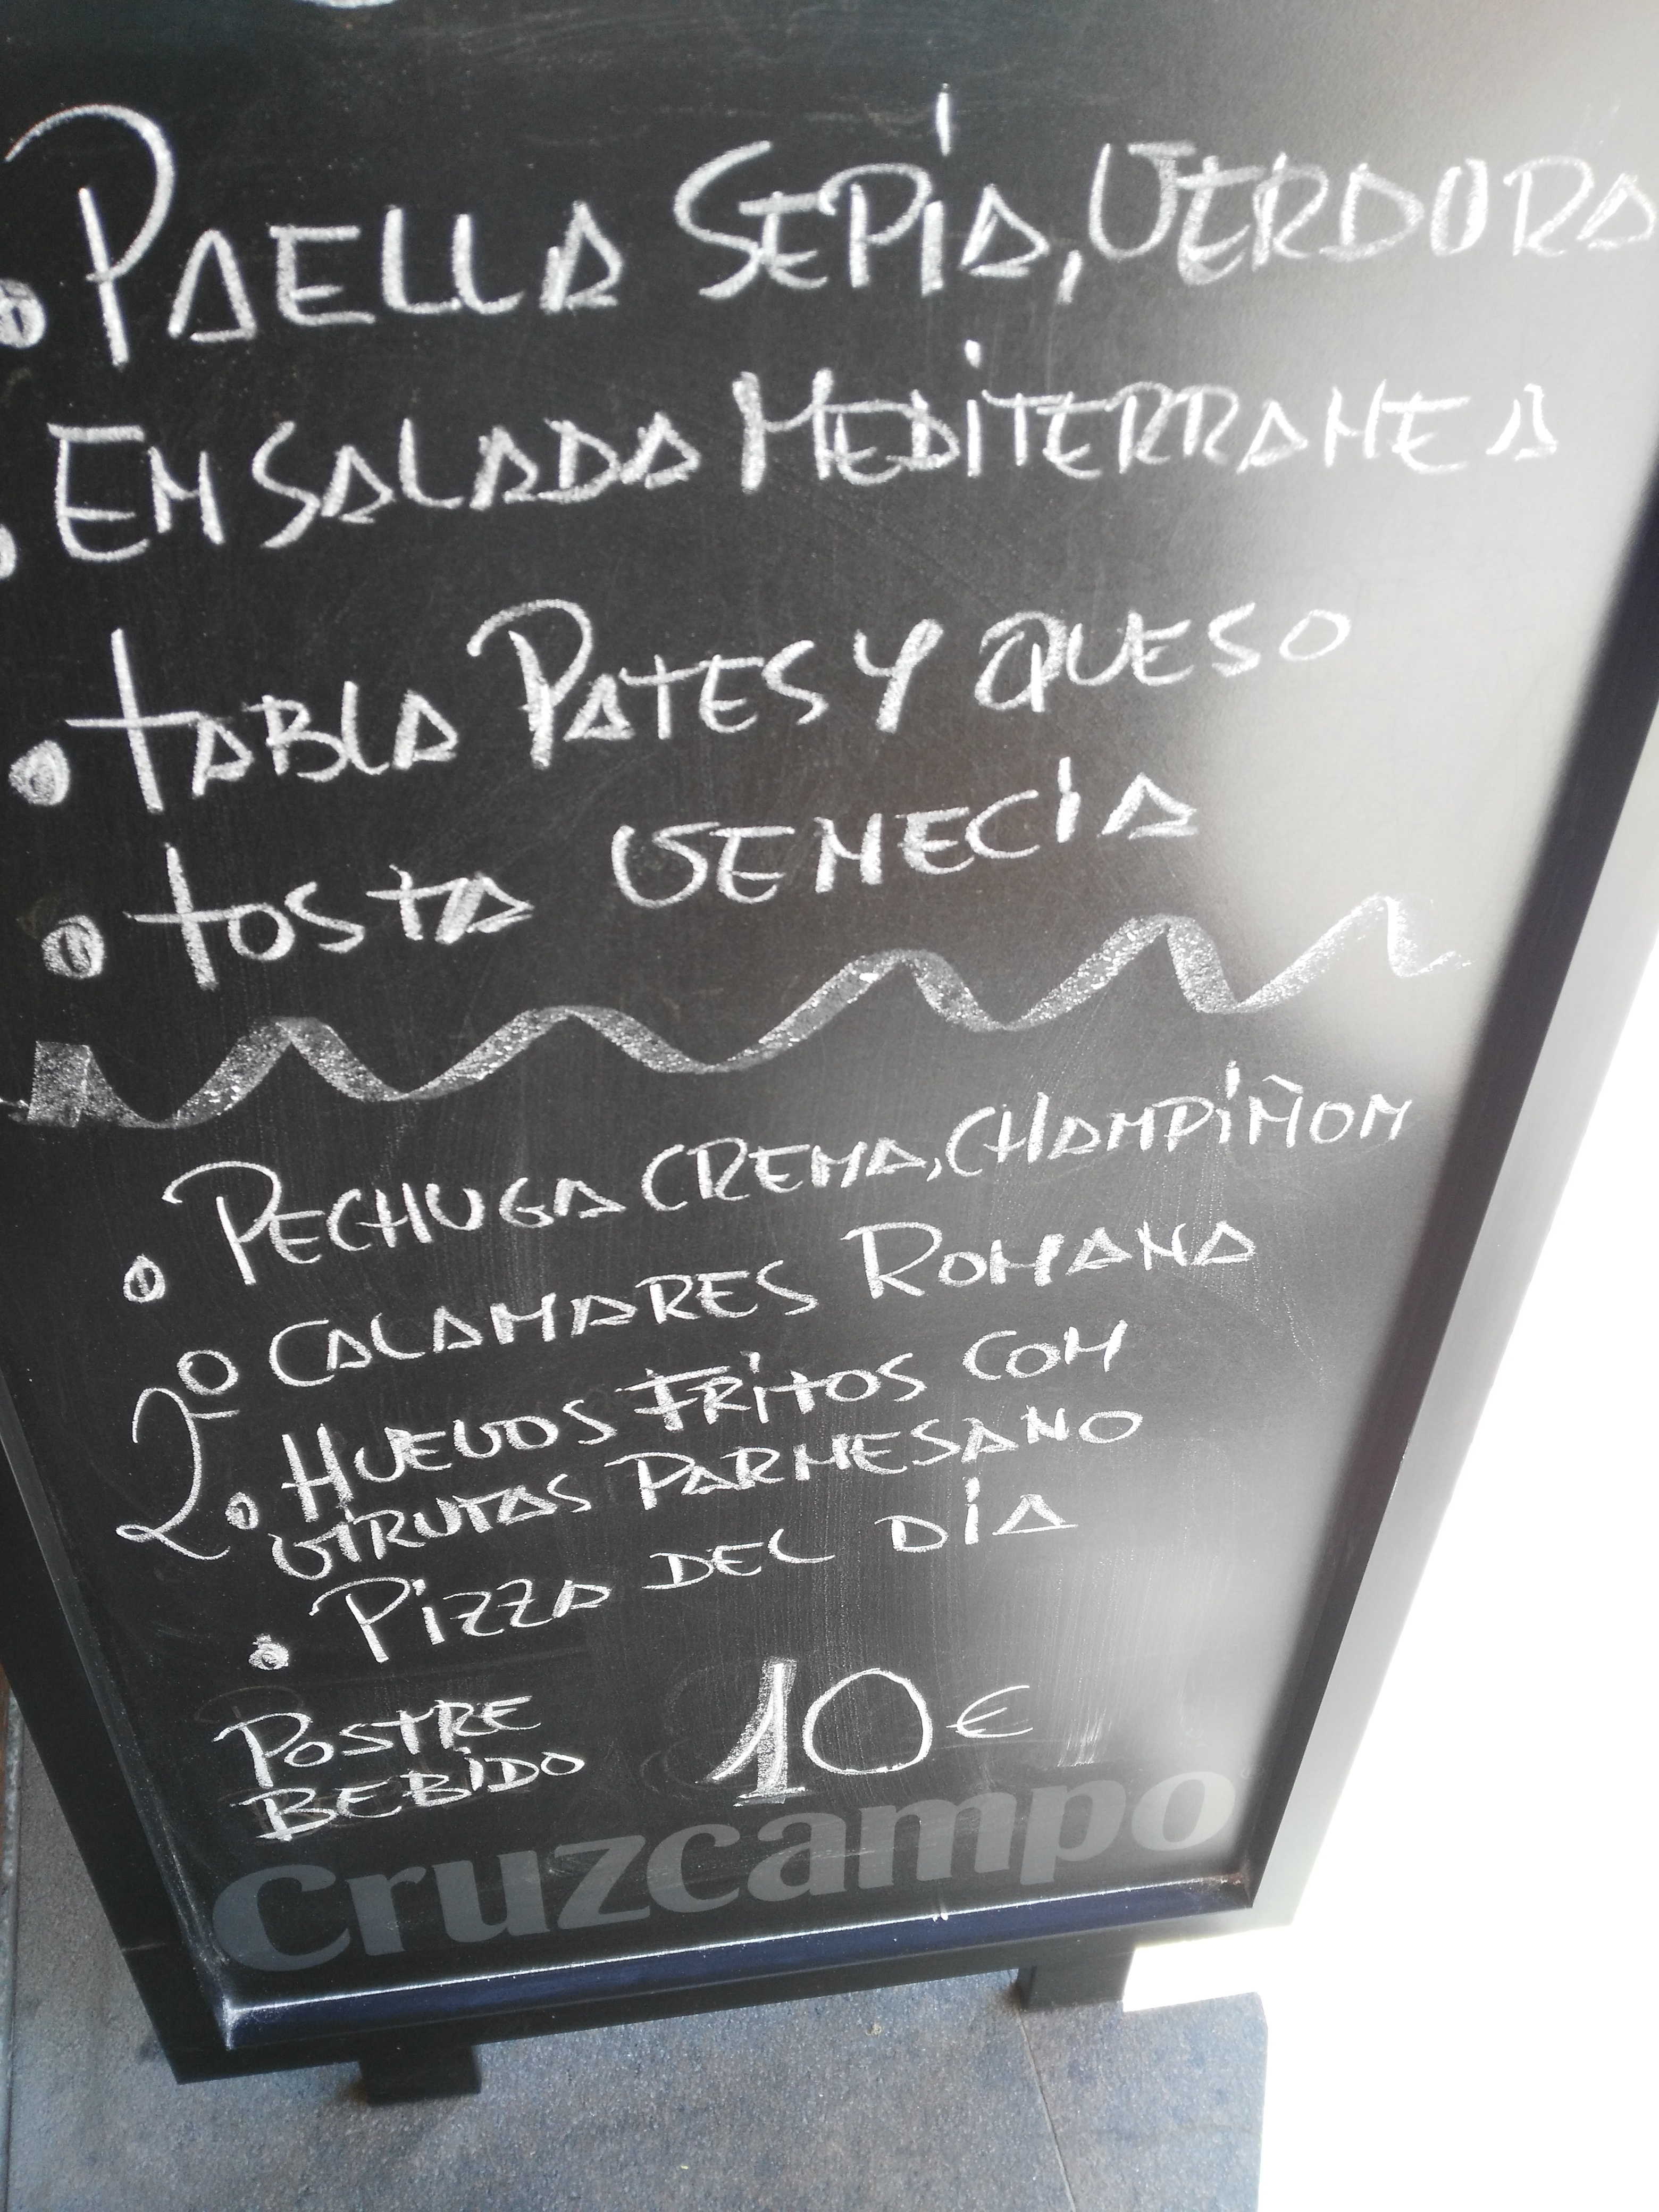 PAELLA SEPIA, VERDURA
ENSALADA MEDITERRANEA
TABLA PATES Y QUESO
TOSTA VENECIA
PECHUGA CREMA, CHAMPIÑON
2º CALAMARES ROMANA
HUEVOS FRITOS CON
VIRUTAS PARMESANO
PIZZA DEL DÍA
POSTRE
BEBIDO
10€
Cruzcampo